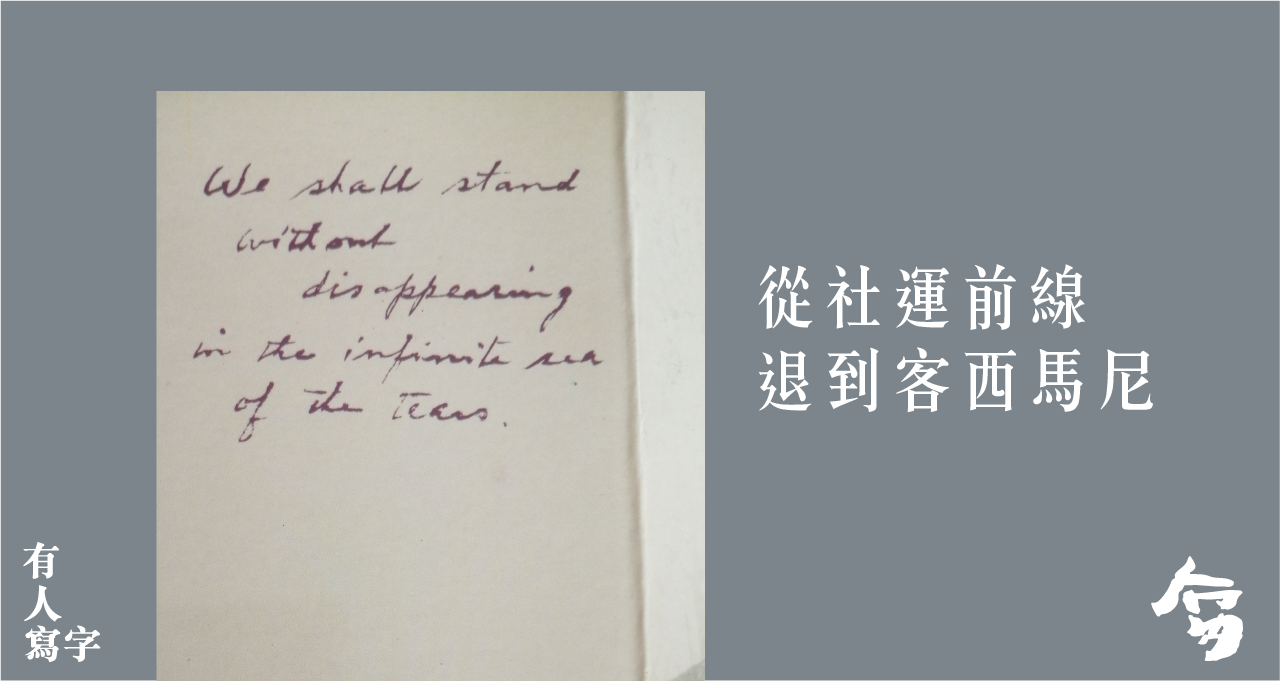 We shall stand
without
disappearing
in the infinite sea
of the tears.
從社運前線
退到客西馬尼
有
人
寫字